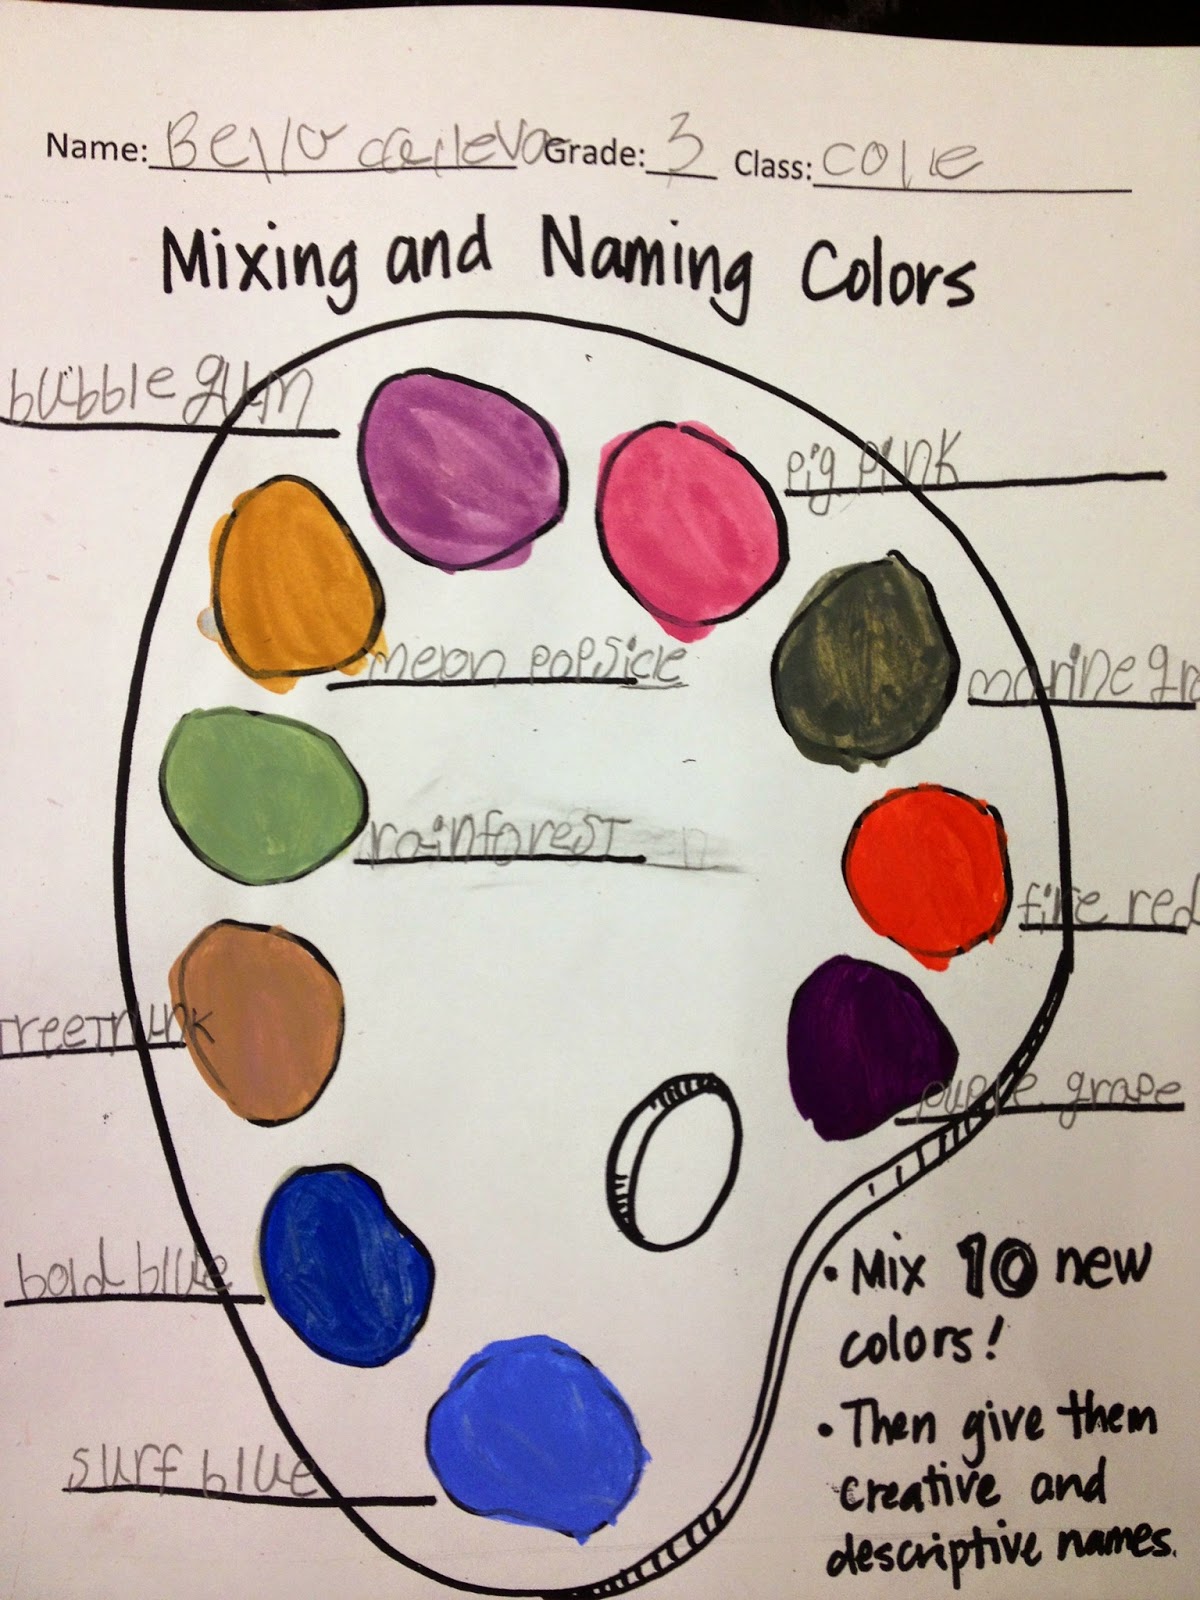 Name: Bella Grade: 3 Class: Cole
Mixing and Naming Colors
bubble gum
pig pink
melon popsicle
marine gr
rainforest
fire red
Tree Trunk
grape
bold blue
surf blue
• Mix 10 new
colors!
• Then give them
creative and
descriptive names.